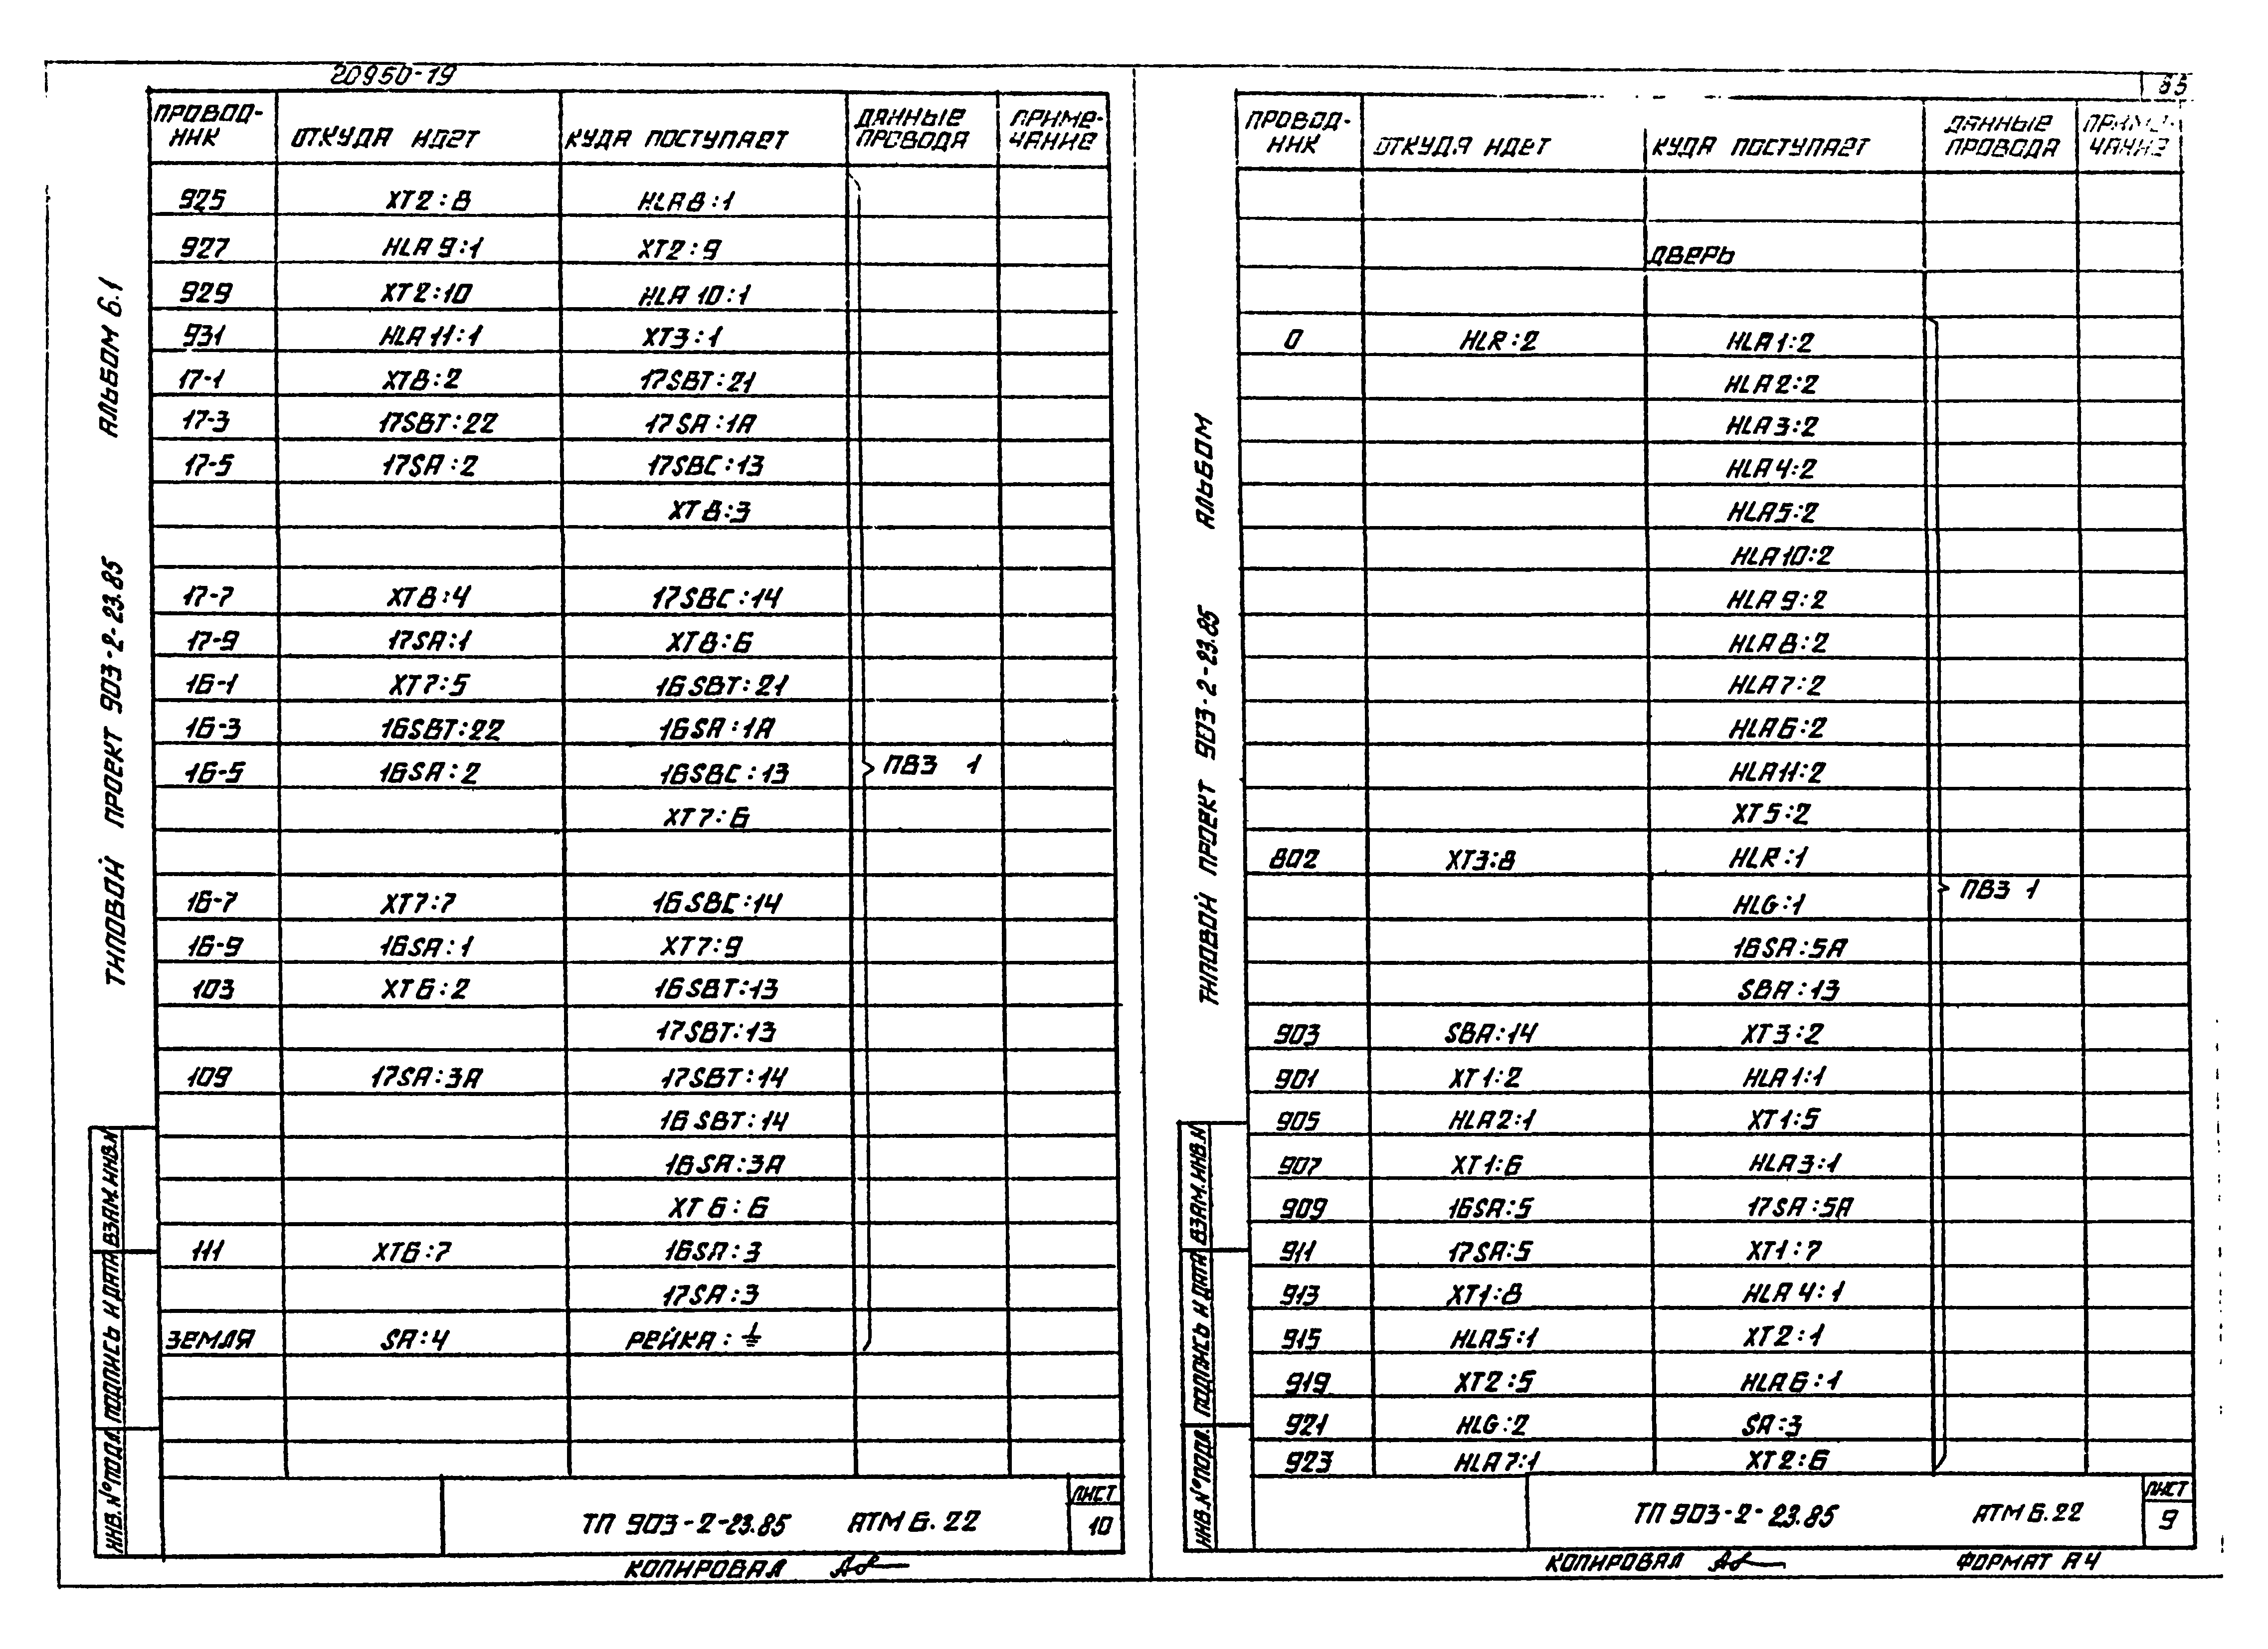 20950-19
ПРОВОД-НИК ОТКУДА ИДЕТ КУДА ПОСТУПАЕТ ДАННЫЕ ПРОВОДА ПРИМЕ-ЧАНИЕ
925 XT2:8 HLA8:1
927 HLA9:1 XT2:9
929 XT2:10 HLA10:1
931 HLA11:1 XT3:1
17-1 XT8:2 17SBT:21
17-3 17SBT:22 17SA:1A
17-5 17SA:2 17SBC:13
XT8:3
17-7 XT8:4 17SBC:14
17-9 17SA:1 XT8:6
16-1 XT7:5 16SBT:21
16-3 16SBT:22 16SA:1A
16-5 16SA:2 16SBC:13 ПВ3 1
XT7:6
16-7 XT7:7 16SBC:14
16-9 16SA:1 XT7:9
103 XT6:2 16SBT:13
17SBT:13
109 17SA:3A 17SBT:14
16SBT:14
16SA:3A
XT6:6
111 XT6:7 16SA:3
17SA:3
ЗЕМЛЯ SA:4 РЕЙКА: ⏚
ТП 903-2-23.85 АТМ 6.22
ЛИСТ
10
КОПИРОВАЛ
АЛЬБОМ 6.1
ТИПОВОЙ ПРОЕКТ 903-2-23.85
ВЗАМ.ИНВ.N
ПОДПИСЬ И ДАТА
ИНВ.N°ПОДЛ.
85
ПРОВОД-НИК ОТКУДА ИДЕТ КУДА ПОСТУПАЕТ ДАННЫЕ ПРОВОДА ПРИМЕ-ЧАНИЕ
ДВЕРЬ
0 HLR:2 HLA1:2
HLA2:2
HLA3:2
HLA4:2
HLA5:2
HLA10:2
HLA9:2
HLA8:2
HLA7:2
HLA6:2
HLA11:2
XT5:2
802 XT3:8 HLR:1
HLG:1 ПВ3 1
16SA:5A
SBA:13
903 SBA:14 XT3:2
901 XT1:2 HLA1:1
905 HLA2:1 XT1:5
907 XT1:6 HLA3:1
909 16SA:5 17SA:5A
911 17SA:5 XT1:7
913 XT1:8 HLA4:1
915 HLA5:1 XT2:1
919 XT2:5 HLA6:1
921 HLG:2 SA:3
923 HLA7:1 XT2:6
ТП 903-2-23.85 АТМ 6.22
ЛИСТ
9
КОПИРОВАЛ ФОРМАТ А4
АЛЬБОМ
ТИПОВОЙ ПРОЕКТ 903-2-23.85
ВЗАМ.ИНВ.N
ПОДПИСЬ И ДАТА
ИНВ.N°ПОДЛ.